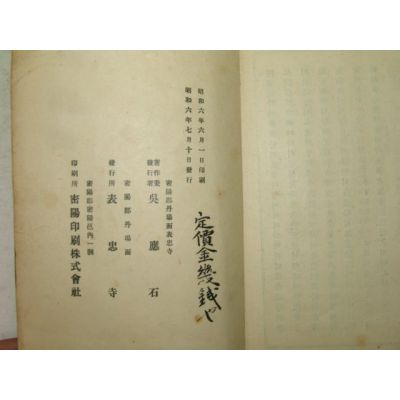 昭和六年六月一日印刷
昭和六年七月十日發行
定價金幾錢也
密陽郡丹場面表忠寺
著作兼
發行者 吳應石
密陽郡丹場面
發行所 表忠寺
密陽郡密陽邑內一洞
印刷所 密陽印刷株式會社